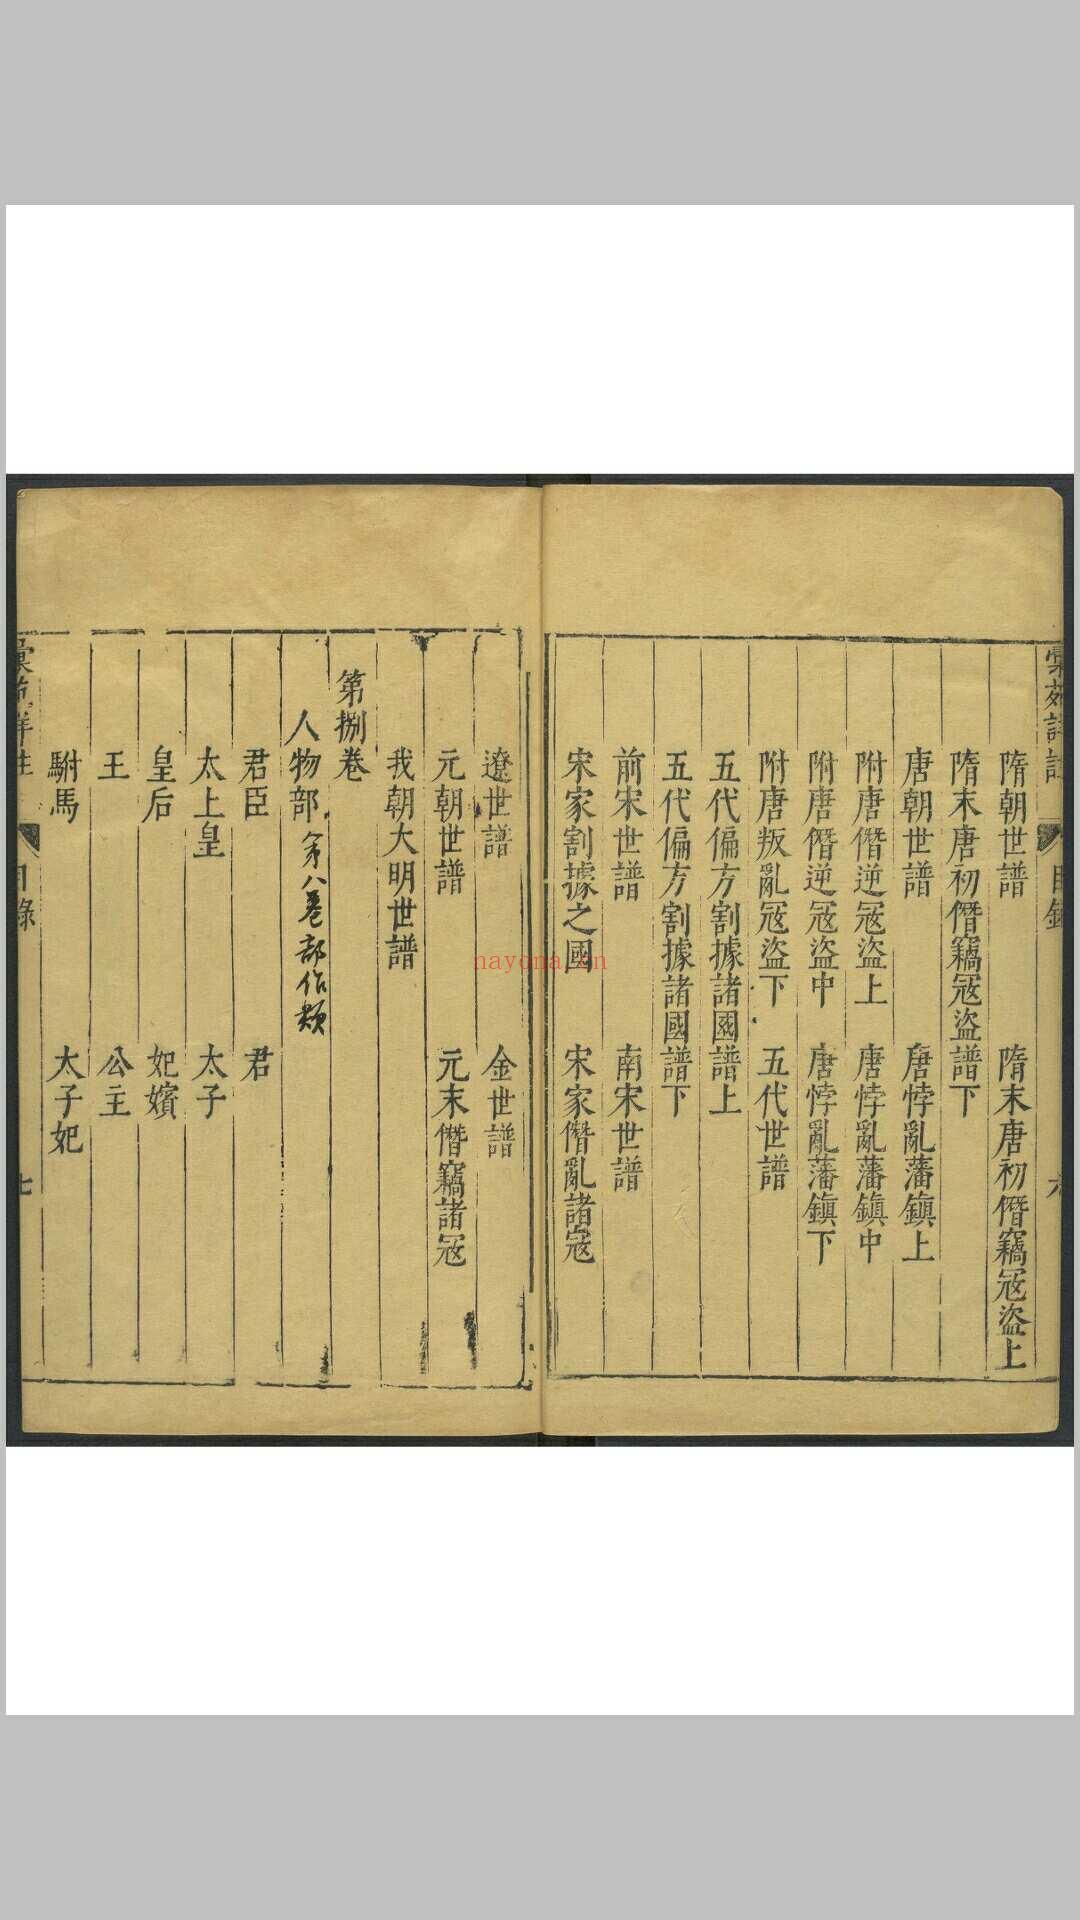 彙苑詳註 目錄 六
隋朝世譜 隋末唐初僭竊冦盜上
隋末唐初僭竊冦盜譜下
唐朝世譜 唐悖亂藩鎮上
附唐僭逆冦盜上 唐悖亂藩鎮中
附唐僭逆冦盜中 唐悖亂藩鎮下
附唐叛亂冦盜下 五代世譜
五代偏方割據諸國譜上
五代偏方割據諸國譜下
前宋世譜 南宋世譜
宋家割據之國 宋家僭亂諸冦
遼世譜 金世譜
元朝世譜 元末僭竊諸冦
我朝大明世譜
第捌卷
人物部 第八卷部作類
君臣 君
太上皇 太子
皇后 妃嬪
王 公主
駙馬 太子妃
彙苑詳註 目錄 七
nayona.cn